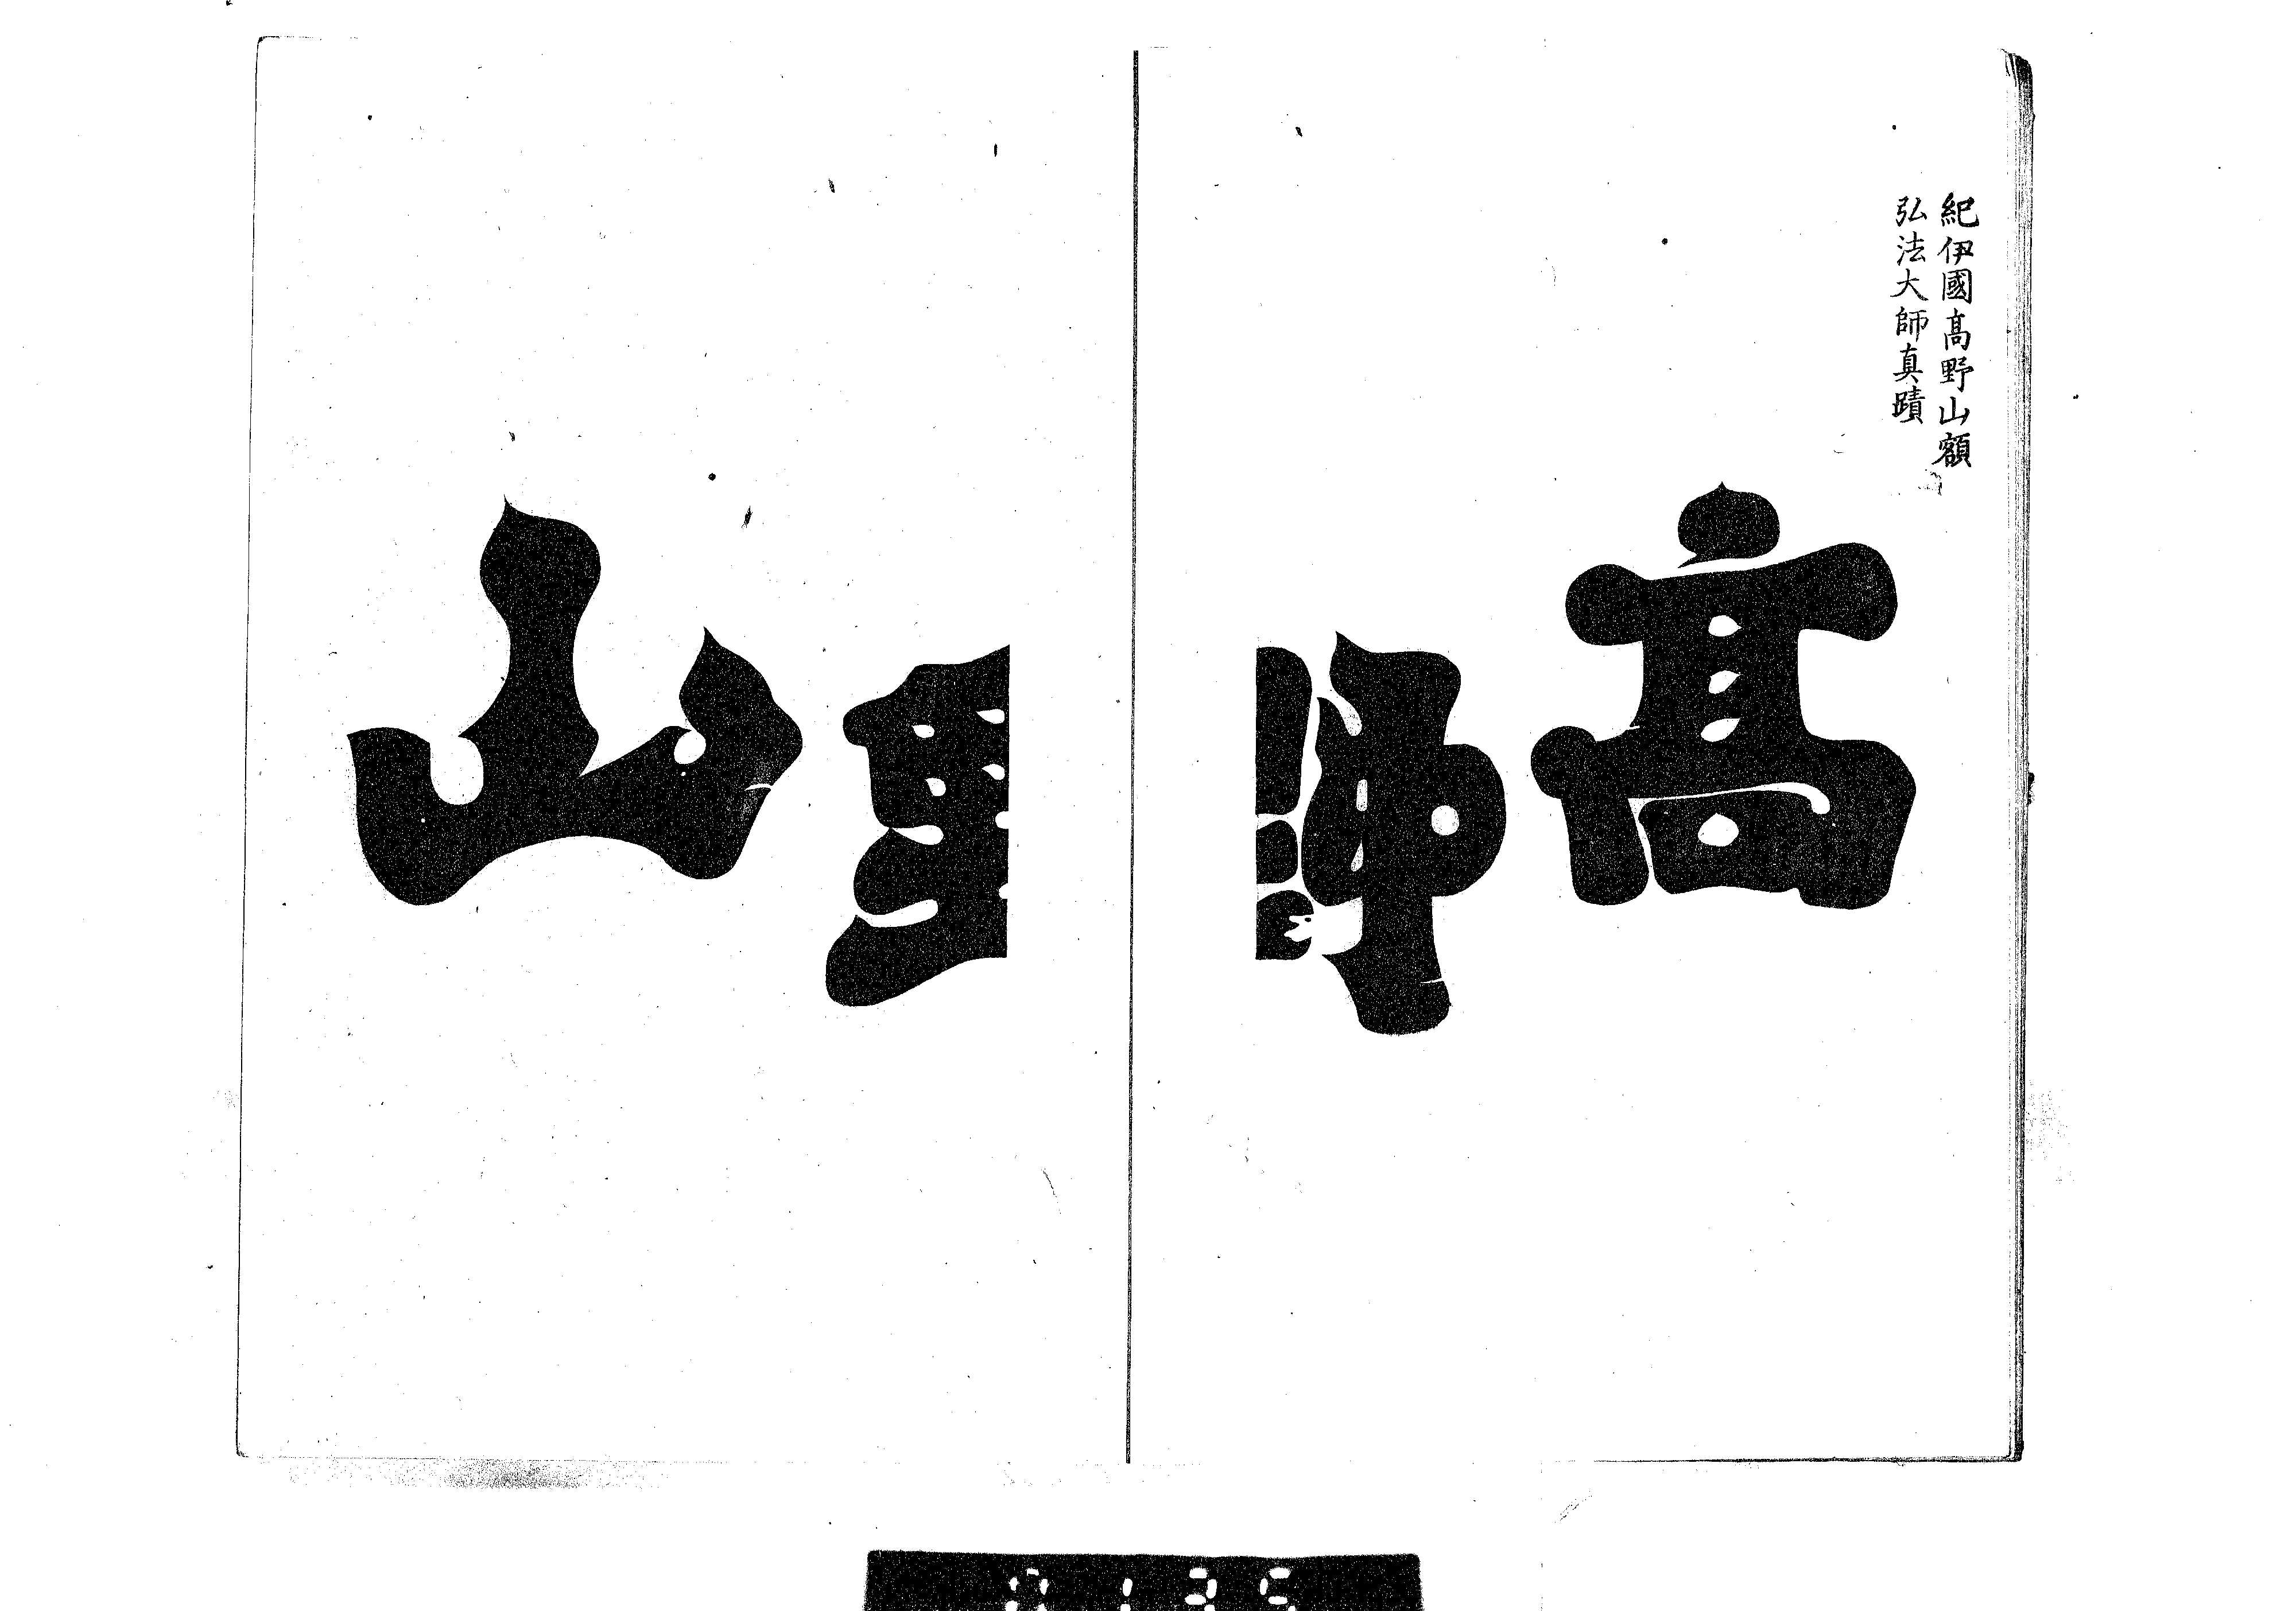 紀伊國高野山額
弘法大師真蹟
高野山